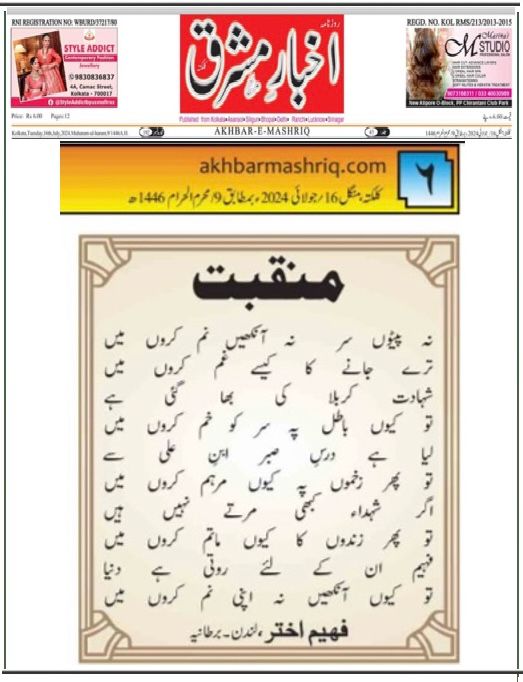 RNI REGISTRATION NO: WBURD/37217/80
REGD. NO. KOL RMS/213/2013-2015
STYLE ADDICT
Contemporary Fashion
Jewellery
9830836837
4A, Camac Street,
Kolkata - 700017
@StyleAddictbyusmafiroz
روزنامہ
اخبارِ مشرق
Published from Kolkata Asansol Siliguri Bhopal Delhi Ranchi Lucknow Srinagar
Marina's
M STUDIO
PROFESSIONAL SALON
HAIR CUT-ADVANCE LAYERS
HAIR EXTENSIONS
9073168311 / 033 40630989
New Alipore O-Block, PP Chirantani Club Park
Price: Rs 6.00 Pages:12
Kolkata, Tuesday, 16th July, 2024, Muharram-ul-haram, 9/1446 A.H.
AKHBAR-E-MASHRIQ
akhbarmashriq.com
۶
کلکتہ، منگل 16/ جولائی 2024ء بمطابق 9/ محرم الحرام 1446ھ
منقبت
نہ پیٹوں سر نہ آنکھیں نم کروں میں
ترے جانے کا کیسے غم کروں میں
شہادت کربلا کی بھا گئی ہے
تو کیوں باطل پہ سر کو خم کروں میں
لیا ہے درسِ صبر ابنِ علی سے
تو پھر زخموں پہ کیوں مرہم کروں میں
اگر شہداء کبھی مرتے نہیں ہیں
تو پھر زندوں کا کیوں ماتم کروں میں
فہیم ان کے لئے روتی ہے دنیا
تو کیوں آنکھیں نہ اپنی نم کروں میں
فہیم اختر، لندن۔ برطانیہ